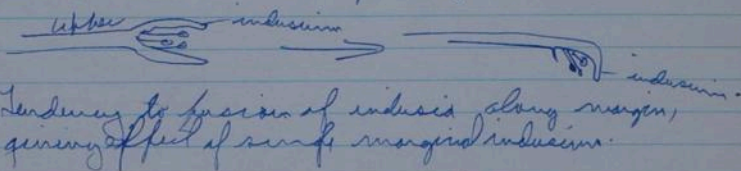 upper indusium
indusium.
Tendency to fusion of indusia along margin,
giving effect of single marginal indusium.